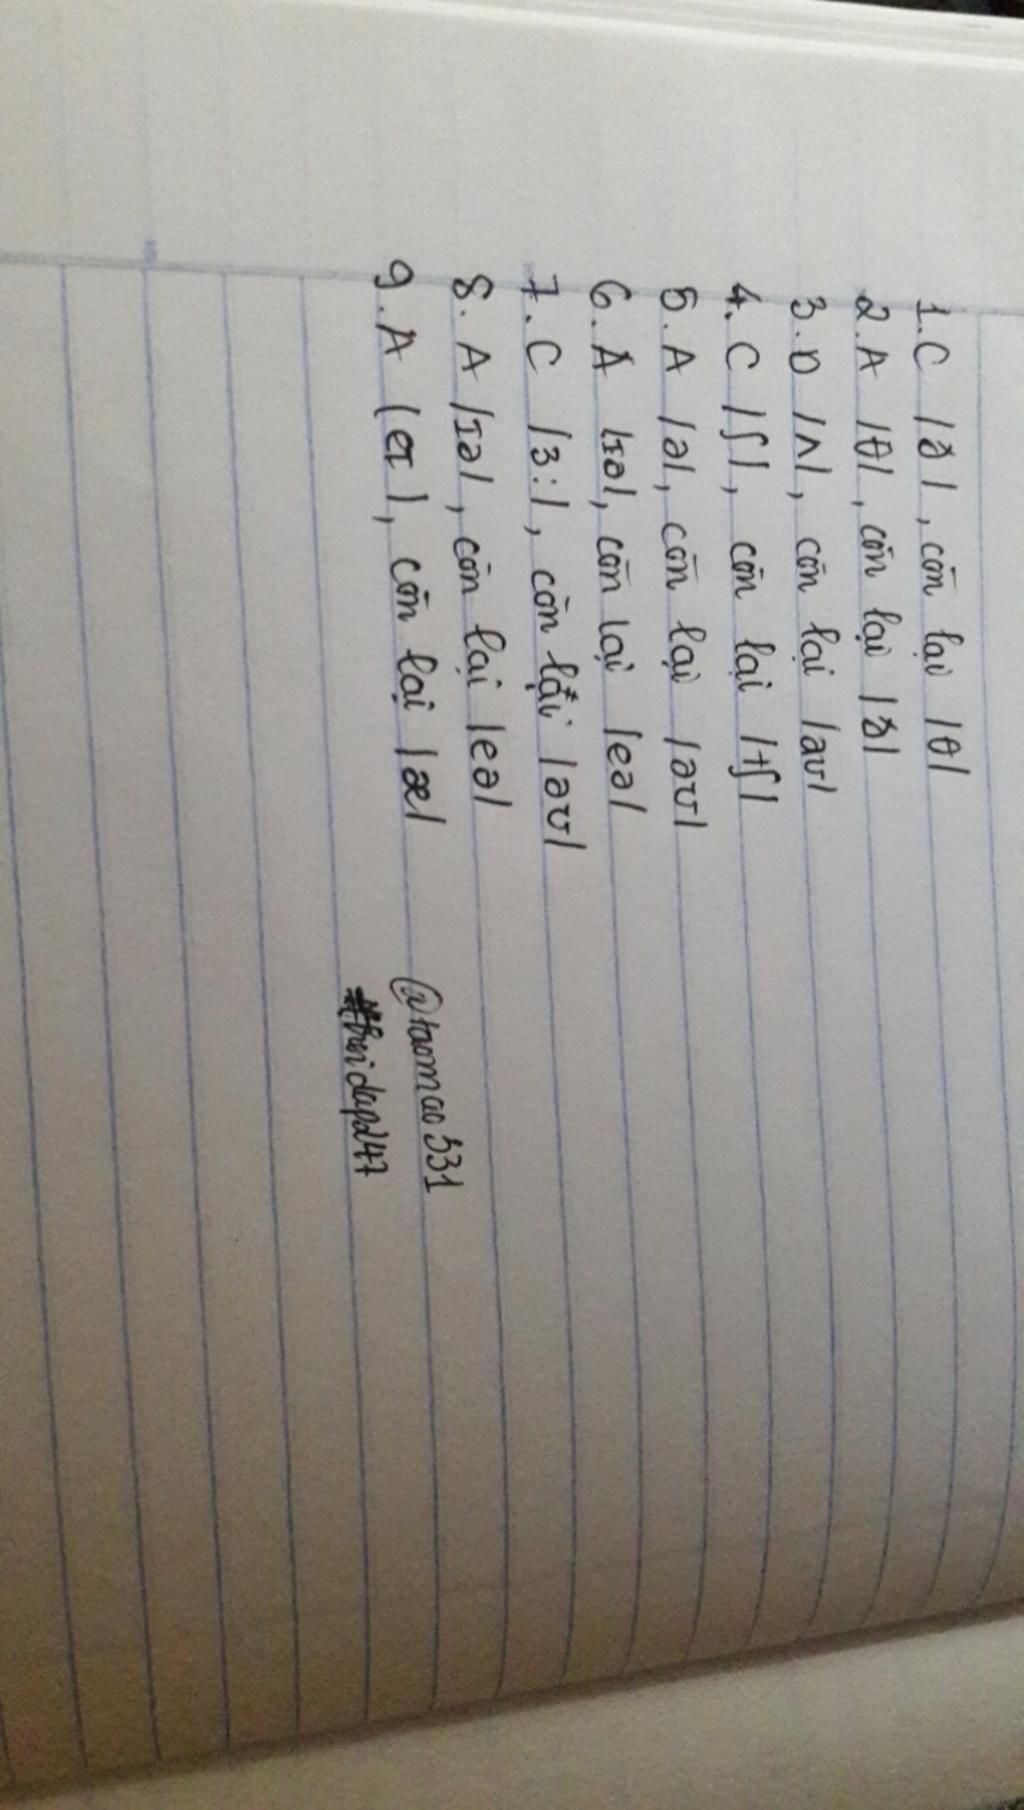 1. C /ð/, còn lại /θ/
2. A /θ/, còn lại /ð/
3. D /ʌ/, còn lại /aʊ/
4. C /ʃ/, còn lại /tʃ/
5. A /ə/, còn lại /əʊ/
6. A /ɪə/, còn lại /eə/
7. C /3:/, còn lại /əʊ/
8. A /ɪə/, còn lại /eə/
9. A /eɪ/, còn lại /æ/
@taomao531